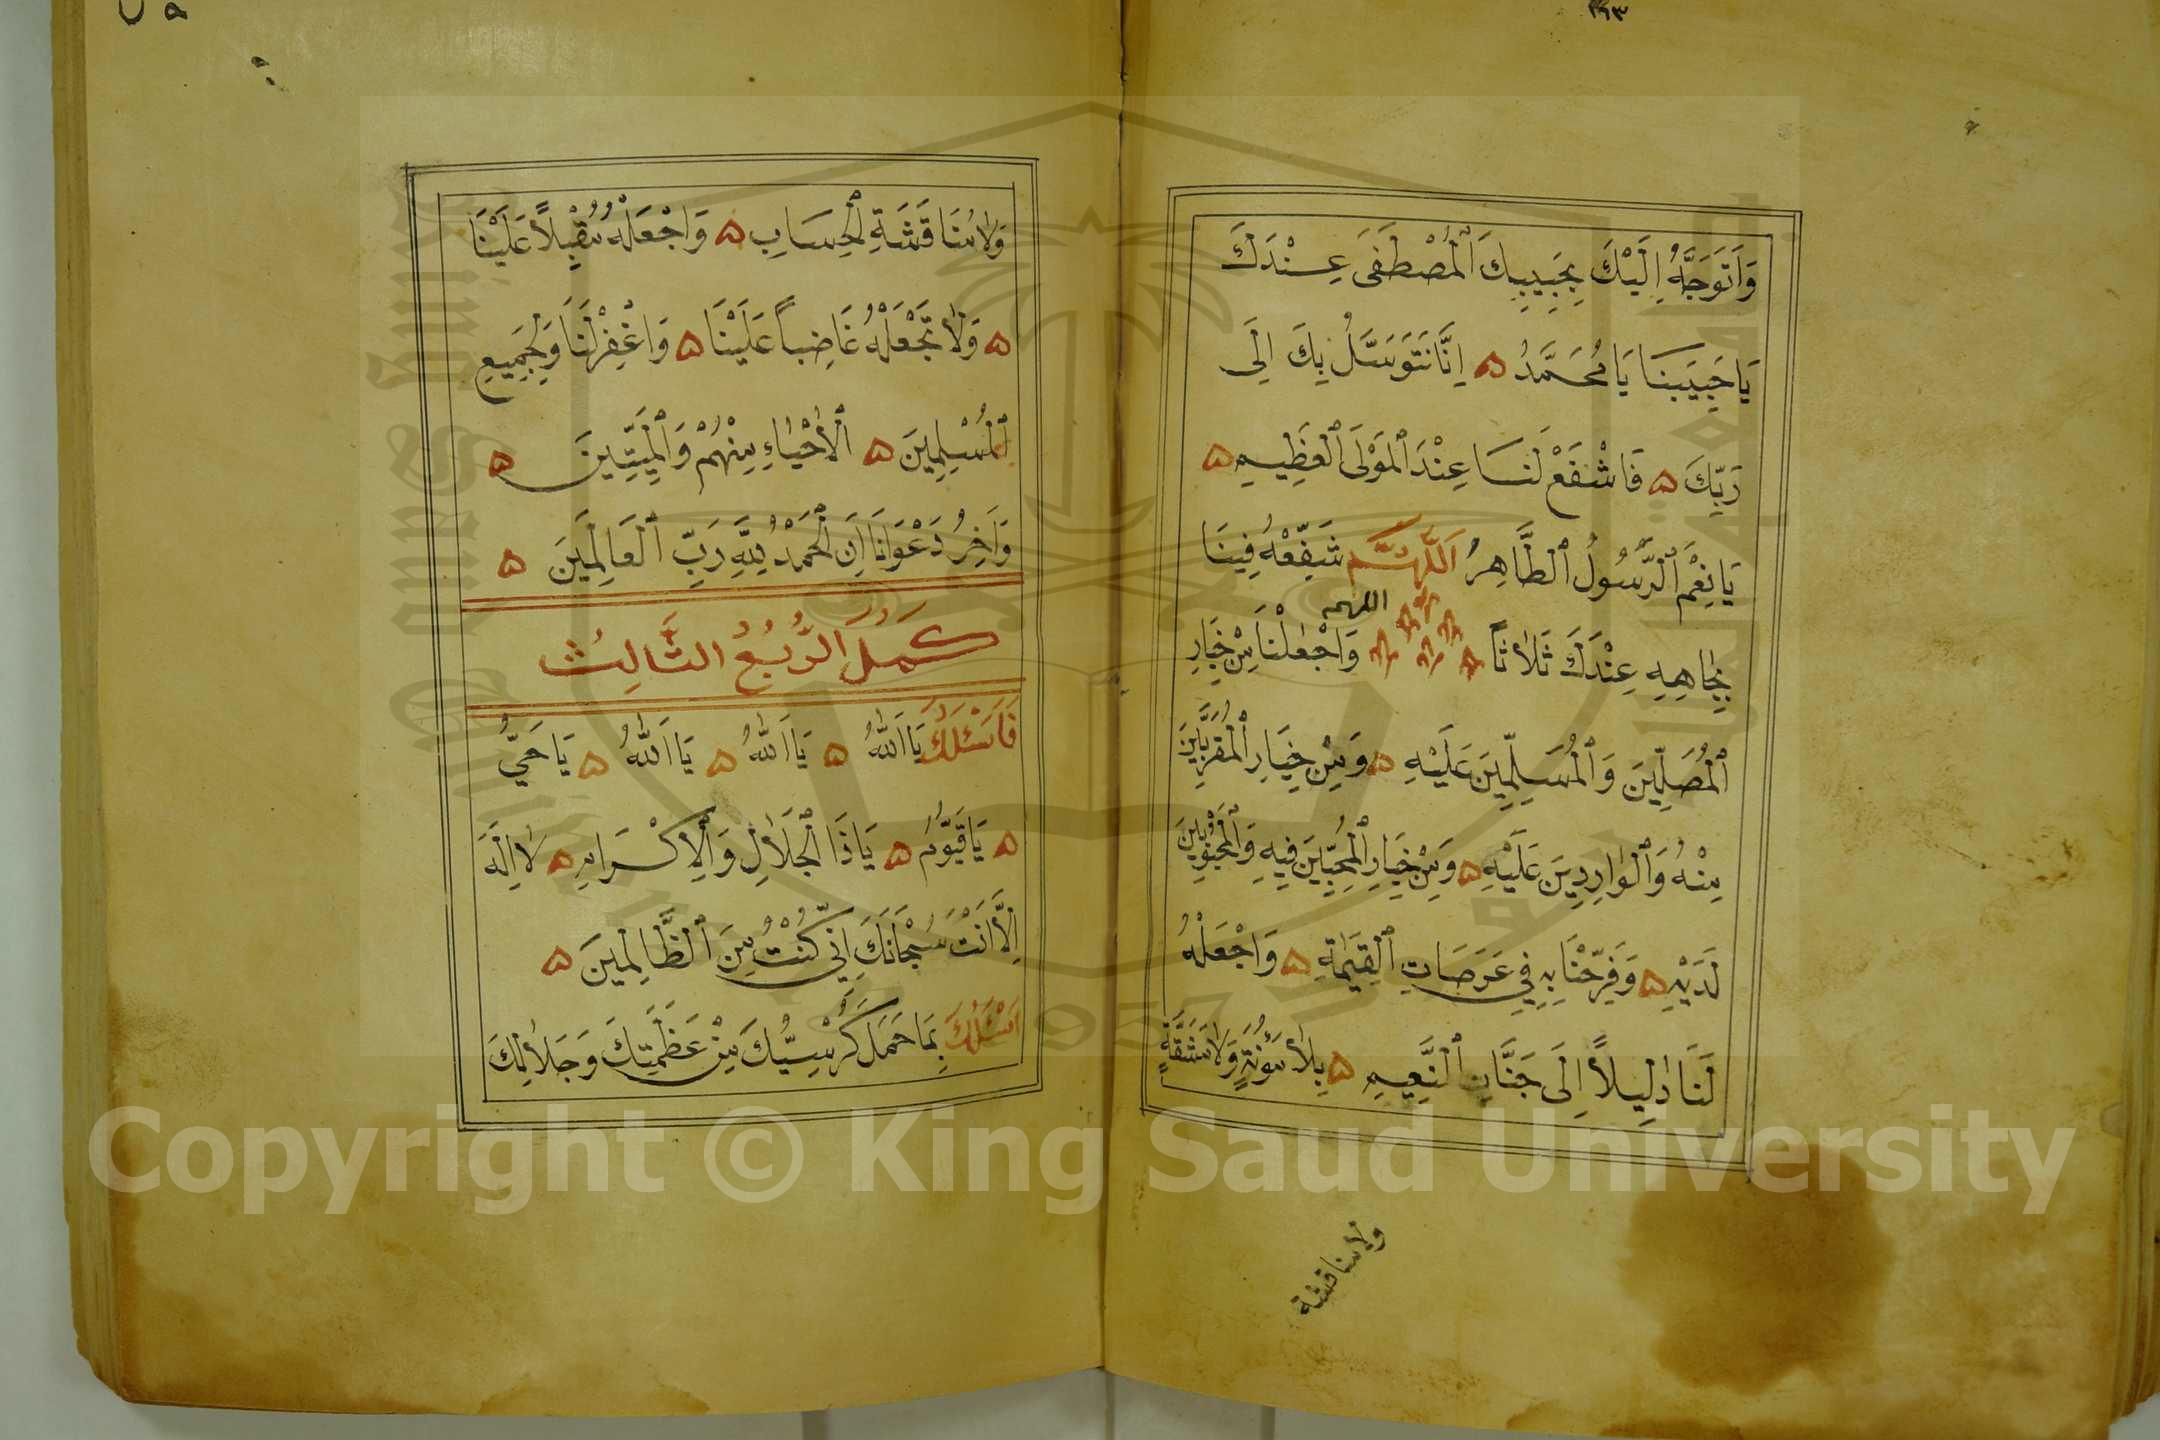 وَاَتَوَجَّهُ اِلَيْكَ بِحَبِيبِكَ ٱلْمُصْطَفَى عِنْدَكَ
يَا حَبِيبَنَا يَا مُحَمَّدُ ۞ اِنَّا نَتَوَسَّلُ بِكَ اِلَى
رَبِّكَ ۞ فَاشْفَعْ لَنَا عِنْدَ ٱلْمَوْلَى ٱلْعَظِيمِ ۞
يَا نِعْمَ ٱلرَّسُولُ ٱلطَّاهِرُ اَللّٰهُمَّ شَفِّعْهُ فِينَا
بِجَاهِهِ عِنْدَكَ ثَلَاثًا اللهم وَاجْعَلْنَا مِنْ خِيَارِ
ٱلْمُصَلِّينَ وَٱلْمُسَلِّمِينَ عَلَيْهِ ۞ وَمِنْ خِيَارِ ٱلْمُقَرَّبِينَ
مِنْهُ وَٱلْوَارِدِينَ عَلَيْهِ ۞ وَمِنْ خِيَارِ ٱلْمُحِبِّينَ فِيهِ وَٱلْمَحْبُوبِينَ
لَدَيْهِ ۞ وَفَرِّحْنَا بِهِ فِي عَرَصَاتِ ٱلْقِيٰمَةِ ۞ وَاجْعَلْهُ
لَنَا دَلِيلاً اِلَى جَنَّاتِ ٱلنَّعِيمِ ۞ بِلَا مَؤُنَةٍ وَلَا مَشَقَّةٍ
ولا مناقشة
وَلَا مُنَاقَشَةِ ٱلْحِسَابِ ۞ وَاجْعَلْهُ مُقْبِلاً عَلَيْنَا
۞ وَلَا تَجْعَلْهُ غَاضِباً عَلَيْنَا ۞ وَاغْفِرْ لَنَا وَلِجَمِيعِ
ٱلْمُسْلِمِينَ ۞ ٱلْاَحْيَاءِ مِنْهُمْ وَٱلْمَيِّتِينَ ۞
وَاٰخِرُ دَعْوَانَا اَنِ ٱلْحَمْدُ لِلّٰهِ رَبِّ ٱلْعَالَمِينَ ۞
كَمُلَ الرُّبُعُ الثَّالِثُ
فَاَسْئَلُكَ يَا اَللّٰهُ ۞ يَا اَللّٰهُ ۞ يَا اَللّٰهُ ۞ يَا حَيُّ
۞ يَا قَيُّومُ ۞ يَا ذَا ٱلْجَلَالِ وَٱلْاِكْرَامِ ۞ لَا اِلٰهَ
اِلَّا اَنْتَ سُبْحَانَكَ اِنِّي كُنْتُ مِنَ ٱلظَّالِمِينَ ۞
اَسْئَلُكَ بِمَا حَمَلَ كُرْسِيُّكَ مِنْ عَظَمَتِكَ وَجَلَالِكَ
Copyright © King Saud University